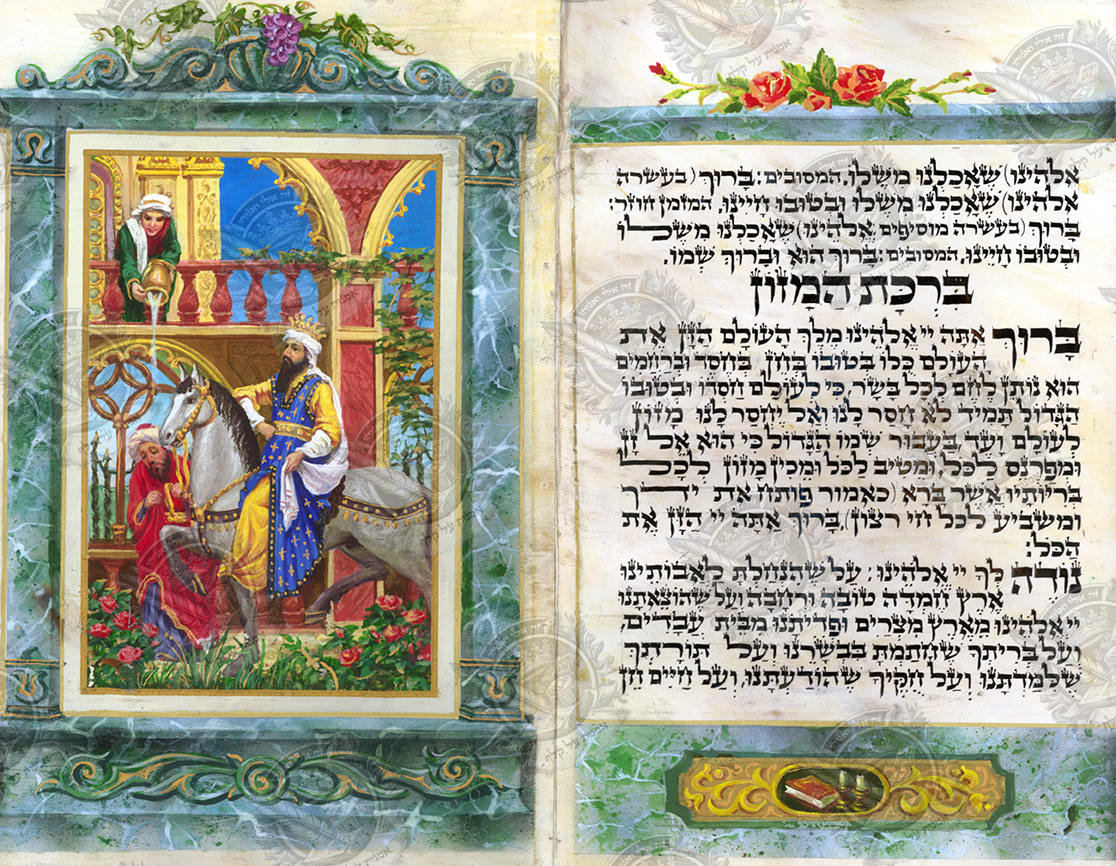 אֱלֹהֵינוּ) שֶׁאָכַלְנוּ מִשֶּׁלוֹ, המסובים: בָּרוּךְ (בעשרה
אֱלֹהֵינוּ) שֶׁאָכַלְנוּ מִשֶּׁלוֹ וּבְטוּבוֹ חָיִינוּ. המזמן חוזר:
בָּרוּךְ (בעשרה מוסיפים אֱלֹהֵינוּ) שֶׁאָכַלְנוּ מִשֶּׁלוֹ
וּבְטוּבוֹ חָיֵינוּ. המסובים: בָּרוּךְ הוּא וּבָרוּךְ שְׁמוֹ.
בִּרְכַּת הַמָּזוֹן
בָּרוּךְ אַתָּה יְיָ אֱלֹהֵינוּ מֶלֶךְ הָעוֹלָם הַזָּן אֶת
הָעוֹלָם כֻּלּוֹ בְּטוּבוֹ בְּחֵן, בְּחֶסֶד וּבְרַחֲמִים
הוּא נוֹתֵן לֶחֶם לְכָל בָּשָׂר, כִּי לְעוֹלָם חַסְדּוֹ וּבְטוּבוֹ
הַגָּדוֹל תָּמִיד לֹא חָסַר לָנוּ וְאַל יֶחְסַר לָנוּ מָזוֹן
לְעוֹלָם וָעֶד בַּעֲבוּר שְׁמוֹ הַגָּדוֹל כִּי הוּא אֵל זָן
וּמְפַרְנֵס לַכֹּל, וּמֵטִיב לַכֹּל וּמֵכִין מָזוֹן לְכָל
בְּרִיּוֹתָיו אֲשֶׁר בָּרָא (כָּאָמוּר פּוֹתֵחַ אֶת יָדֶךָ
וּמַשְׂבִּיעַ לְכָל חַי רָצוֹן), בָּרוּךְ אַתָּה יְיָ הַזָּן אֶת
הַכֹּל:
נוֹדֶה לְּךָ יְיָ אֱלֹהֵינוּ: עַל שֶׁהִנְחַלְתָּ לַאֲבוֹתֵינוּ
אֶרֶץ חֶמְדָּה טוֹבָה וּרְחָבָה וְעַל שֶׁהוֹצֵאתָנוּ
יְיָ אֱלֹהֵינוּ מֵאֶרֶץ מִצְרַיִם וּפְדִיתָנוּ מִבֵּית עֲבָדִים,
וְעַל בְּרִיתְךָ שֶׁחָתַמְתָּ בִּבְשָׂרֵנוּ וְעַל תּוֹרָתְךָ
שֶׁלִּמַּדְתָּנוּ וְעַל חֻקֶּיךָ שֶׁהוֹדַעְתָּנוּ, וְעַל חַיִּים חֵן
זה אלי ואנוהו
אמנות על קלף